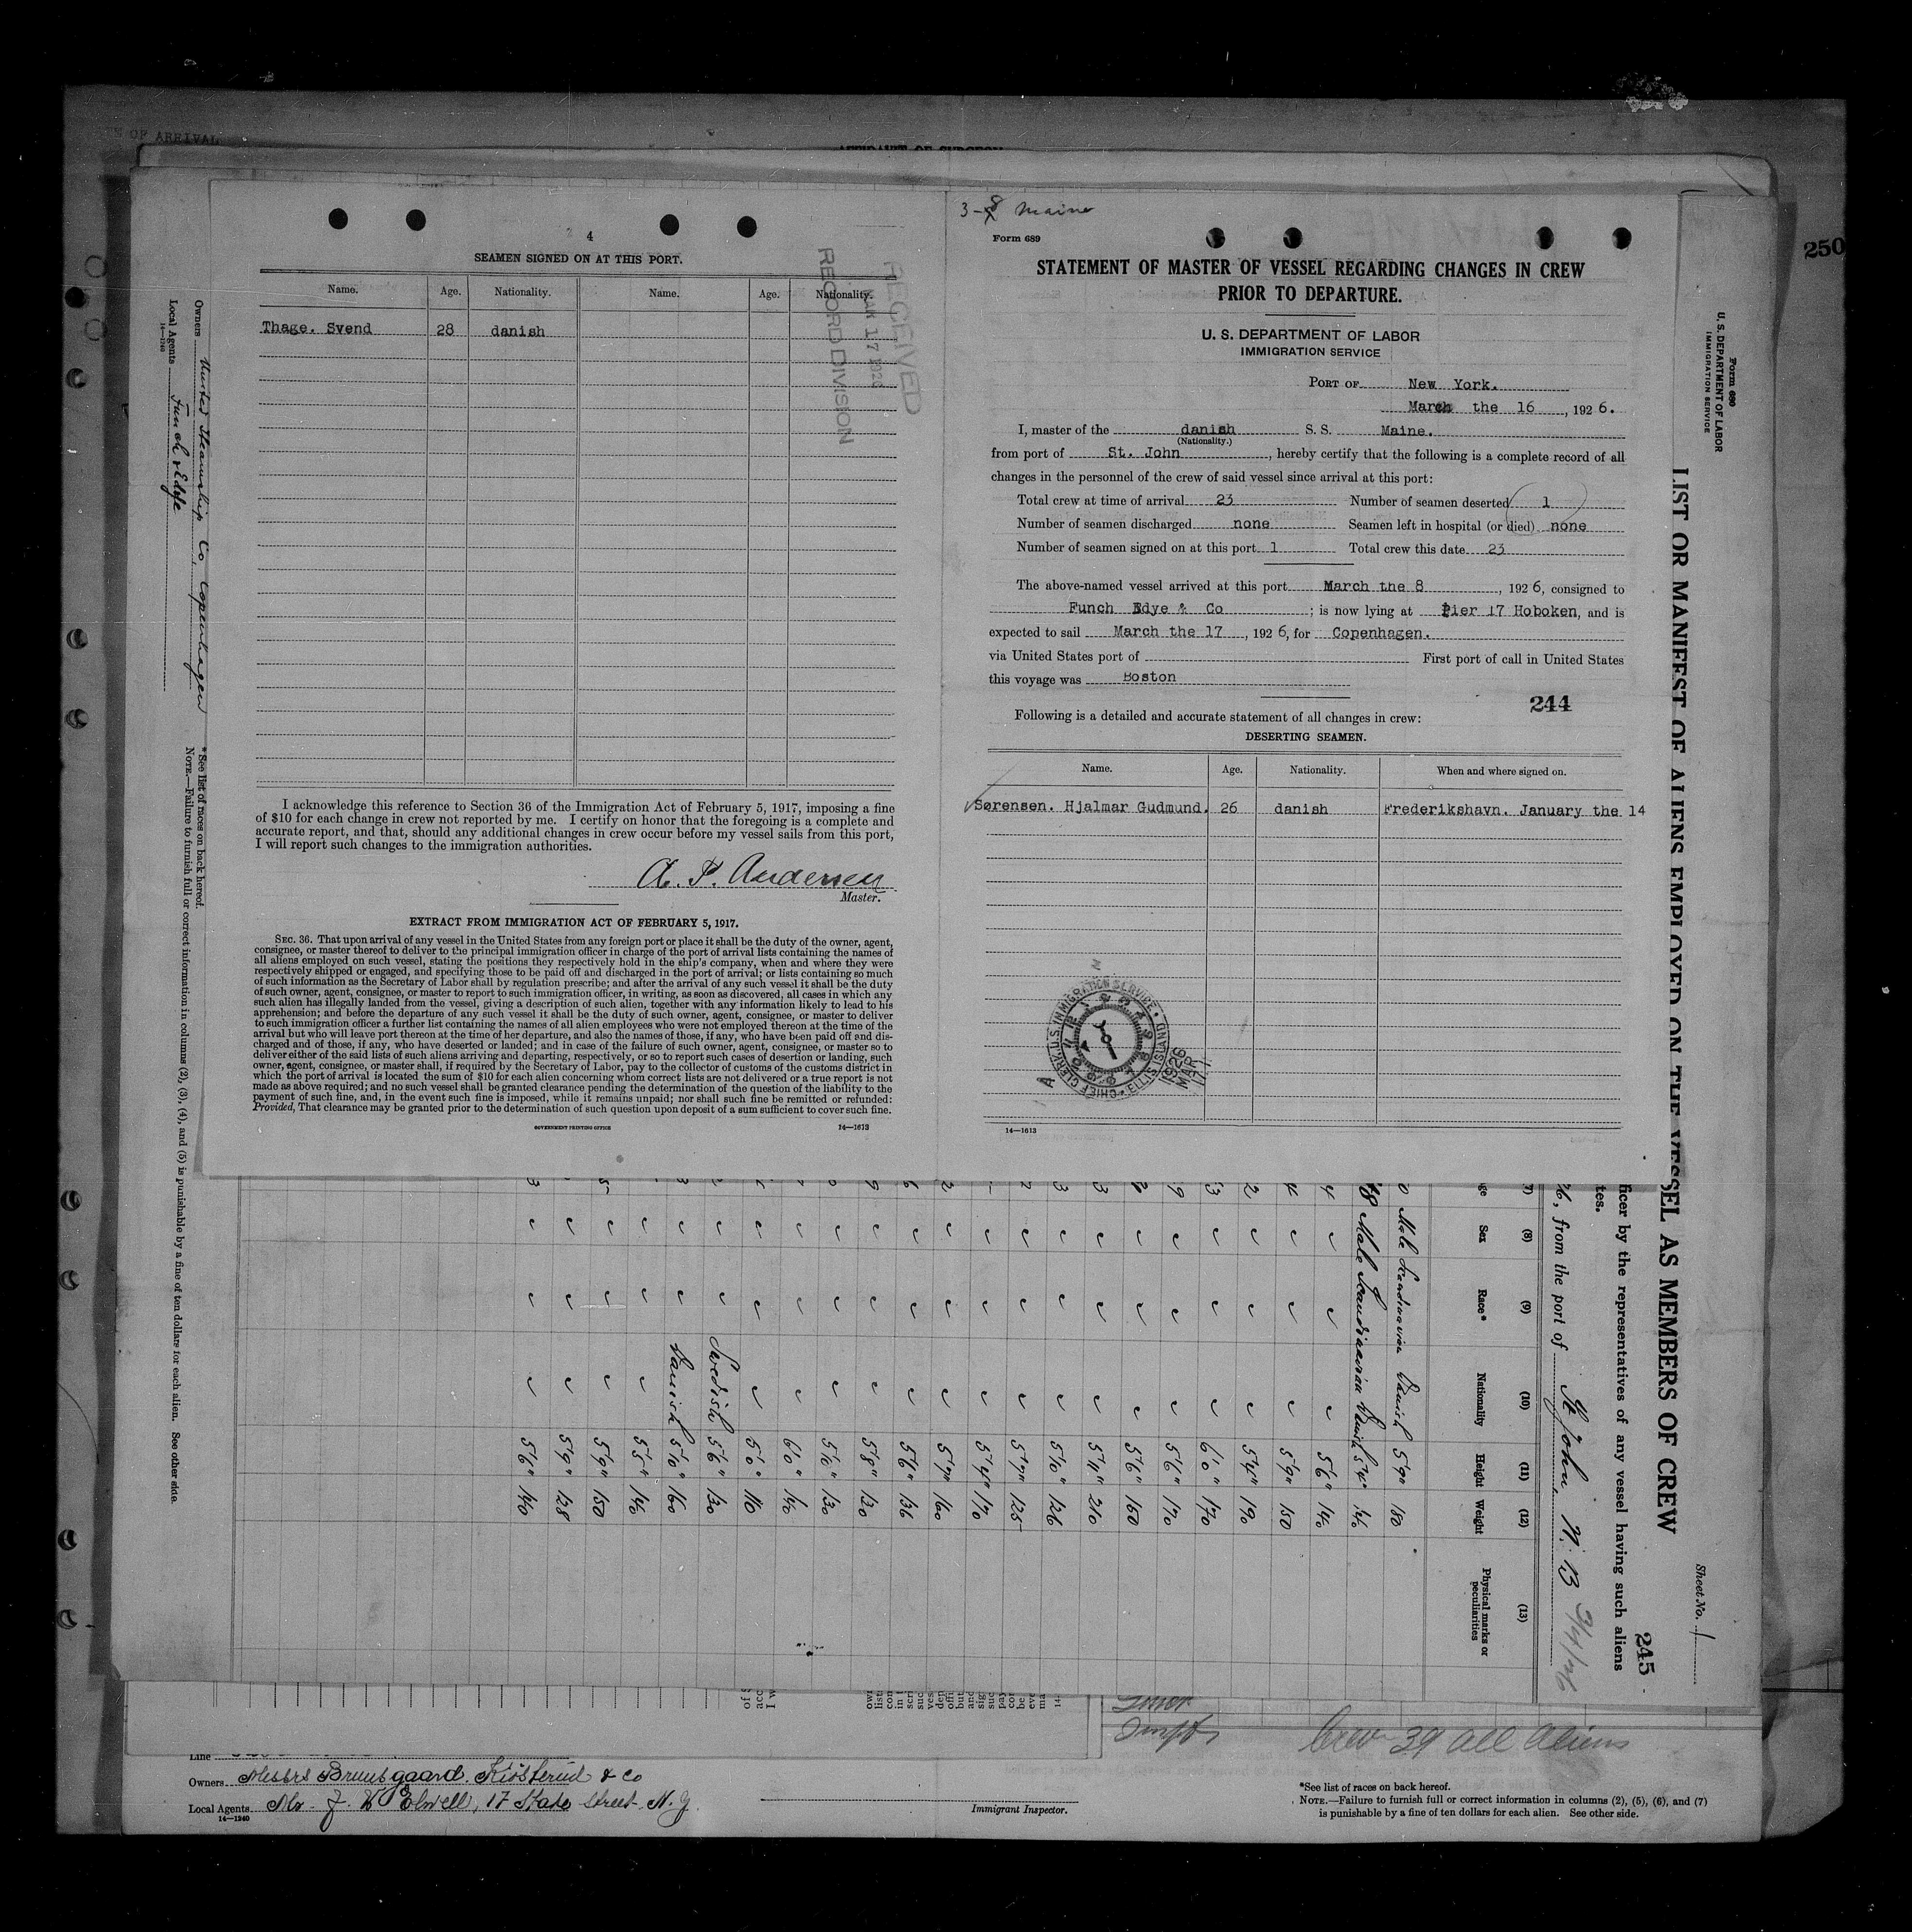 N OF ARRIVAL
AFFIDAVIT OF SURGEON
250
4
SEAMEN SIGNED ON AT THIS PORT.
Name. Age. Nationality. Name. Age. Nationality.
Thage. Svend 28 danish
RECEIVED
MAR 17 1926
RECORD DIVISION
I acknowledge this reference to Section 36 of the Immigration Act of February 5, 1917, imposing a fine
of $10 for each change in crew not reported by me. I certify on honor that the foregoing is a complete and
accurate report, and that, should any additional changes in crew occur before my vessel sails from this port,
I will report such changes to the immigration authorities.
A. P. Andersen
Master.
EXTRACT FROM IMMIGRATION ACT OF FEBRUARY 5, 1917.
SEC. 36. That upon arrival of any vessel in the United States from any foreign port or place it shall be the duty of the owner, agent,
consignee, or master thereof to deliver to the principal immigration officer in charge of the port of arrival lists containing the names of
all aliens employed on such vessel, stating the positions they respectively hold in the ship's company, when and where they were
respectively shipped or engaged, and specifying those to be paid off and discharged in the port of arrival; or lists containing so much
of such information as the Secretary of Labor shall by regulation prescribe; and after the arrival of any such vessel it shall be the duty
of such owner, agent, consignee, or master to report to such immigration officer, in writing, as soon as discovered, all cases in which any
such alien has illegally landed from the vessel, giving a description of such alien, together with any information likely to lead to his
apprehension; and before the departure of any such vessel it shall be the duty of such owner, agent, consignee, or master to deliver
to such immigration officer a further list containing the names of all alien employees who were not employed thereon at the time of the
arrival but who will leave port thereon at the time of her departure, and also the names of those, if any, who have been paid off and dis-
charged and of those, if any, who have deserted or landed; and in case of the failure of such owner, agent, consignee, or master so to
deliver either of the said lists of such aliens arriving and departing, respectively, or so to report such cases of desertion or landing, such
owner, agent, consignee, or master shall, if required by the Secretary of Labor, pay to the collector of customs of the customs district in
which the port of arrival is located the sum of $10 for each alien concerning whom correct lists are not delivered or a true report is not
made as above required; and no such vessel shall be granted clearance pending the determination of the question of the liability to the
payment of such fine, and, in the event such fine is imposed, while it remains unpaid; nor shall such fine be remitted or refunded:
Provided, That clearance may be granted prior to the determination of such question upon deposit of a sum sufficient to cover such fine.
GOVERNMENT PRINTING OFFICE 14—1613
3-8 Maine
Form 689
STATEMENT OF MASTER OF VESSEL REGARDING CHANGES IN CREW
PRIOR TO DEPARTURE.
U. S. DEPARTMENT OF LABOR
IMMIGRATION SERVICE
PORT OF New York.
March the 16, 1926.
I, master of the danish S. S. Maine.
(Nationality.)
from port of St. John, hereby certify that the following is a complete record of all
changes in the personnel of the crew of said vessel since arrival at this port:
Total crew at time of arrival 23 Number of seamen deserted 1
Number of seamen discharged none Seamen left in hospital (or died) none
Number of seamen signed on at this port 1 Total crew this date 23
The above-named vessel arrived at this port March the 8, 1926, consigned to
Funch Edye & Co; is now lying at Pier 17 Hoboken, and is
expected to sail March the 17, 1926, for Copenhagen.
via United States port of First port of call in United States
this voyage was Boston
244
Following is a detailed and accurate statement of all changes in crew:
DESERTING SEAMEN.
Name. Age. Nationality. When and where signed on.
Sørensen. Hjalmar Gudmund. 26 danish Frederikshavn. January the 14
CHIEF CLERK, U.S. IMMIGRATION SERVICE • ELLIS ISLAND
1926
MAR
17
14—1613
Form 680
U. S. DEPARTMENT OF LABOR
IMMIGRATION SERVICE
LIST OR MANIFEST OF ALIENS EMPLOYED ON THE VESSEL AS MEMBERS OF CREW
Sheet No. 1
245
ficer by the representatives of any vessel having such aliens
tes.
, from the port of St John N. B
(8) (9) (10) (11) (12) (13)
Sex Race* Nationality Height Weight Physical marks or peculiarities
Male Scandinavian Danish 5'9" 180
Male Scandinavian Danish 5'4" 146
5'6" 140
5'9" 150
5'4" 190
6'0" 170
5'6" 170
5'6" 160
5'11" 210
5'10" 126
5'7" 125
5'4" 170
5'7" 160
5'6" 136
5'8" 130
5'10" 130
6'0" 140
5'0" 110
Swedish 5'6" 130
Danish 5'10" 160
5'5" 140
5'9" 150
5'9" 128
5'6" 140
Owners United Steamship Co, Copenhagen
Local Agents Funch Edye
14—1240
*See list of races on back hereof.
NOTE.—Failure to furnish full or correct information in columns (2), (3), (4), and (5) is punishable by a fine of ten dollars for each alien. See other side.
Crew 39 all aliens
Line
Owners Messrs Bruusgaard. Kiösterud & Co
Local Agents Mr. J. W Elwell, 17 State Street N.Y.
14—1240
Immigrant Inspector.
*See list of races on back hereof.
NOTE.—Failure to furnish full or correct information in columns (2), (5), (6), and (7)
is punishable by a fine of ten dollars for each alien. See other side.